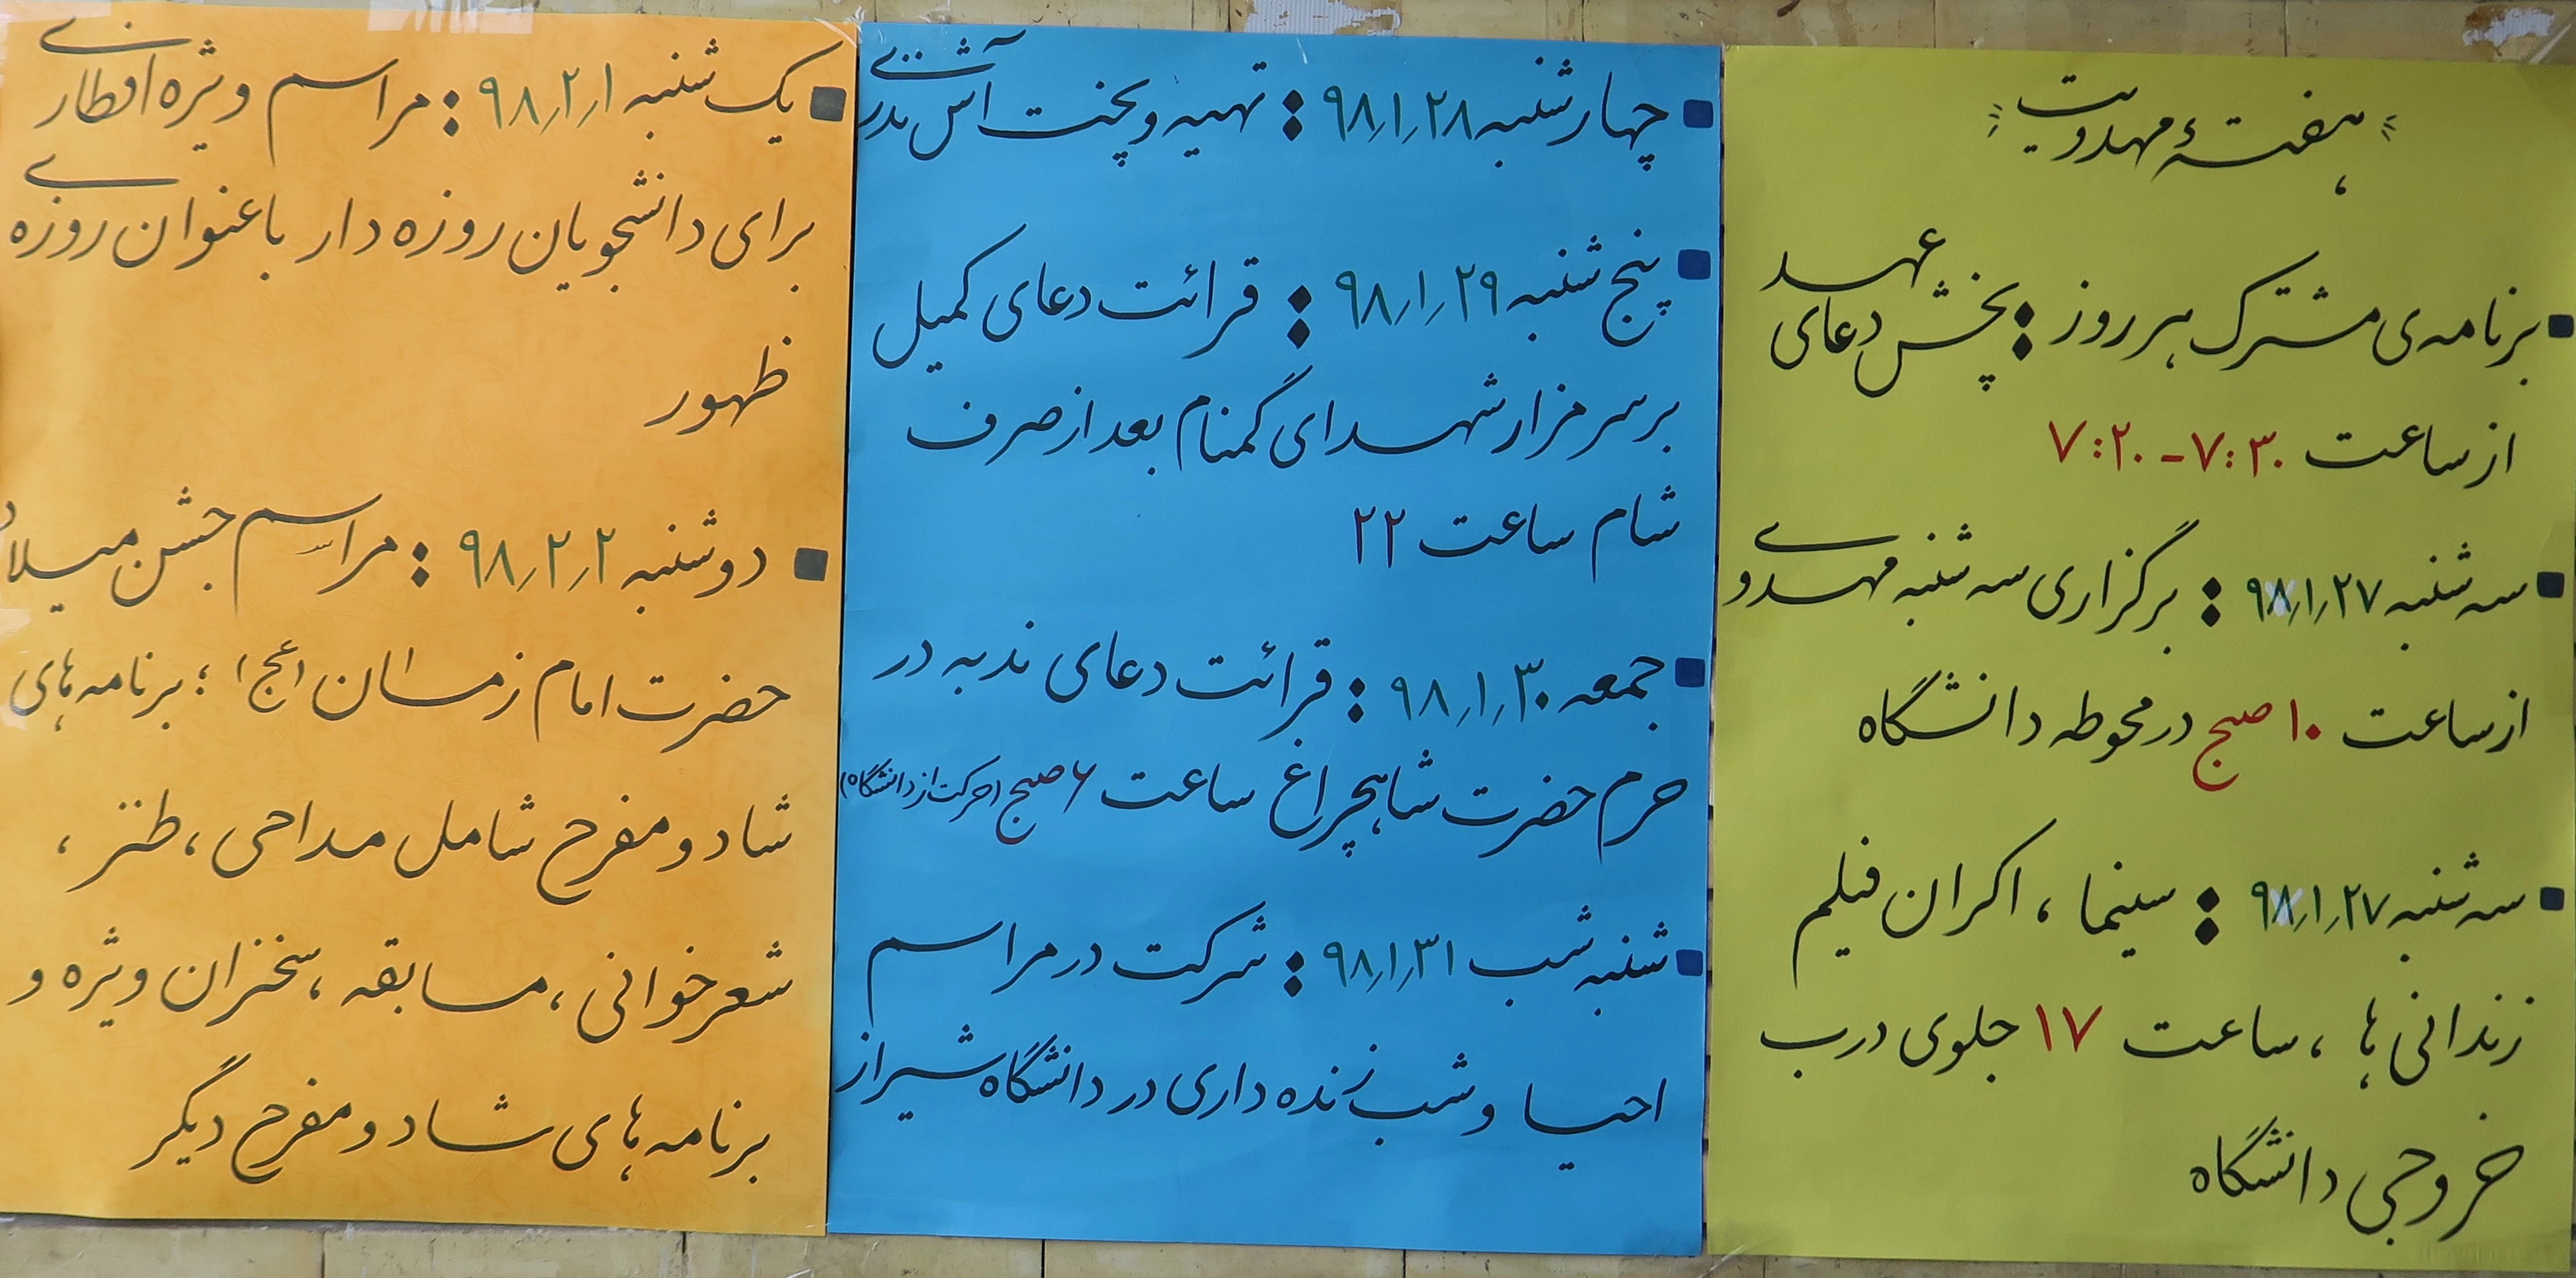 هفتهٔ مهدویت
برنامه‌ی مشترک هر روز : پخش دعای عهد
از ساعت ۷:۲۰ - ۷:۳۰
سه شنبه ۹۸/۱/۲۷ : برگزاری سه شنبه مهدوی
از ساعت ۱۰ صبح در محوطه دانشگاه
سه شنبه ۹۸/۱/۲۷ : سینما ، اکران فیلم
زندانی ها ، ساعت ۱۷ جلوی درب
خروجی دانشگاه
چهارشنبه ۹۸/۱/۲۸ : تهیه و پخت آش نذری
پنج شنبه ۹۸/۱/۲۹ : قرائت دعای کمیل
بر سر مزار شهدای گمنام بعد از صرف
شام ساعت ۲۲
جمعه ۹۸/۱/۳۰ : قرائت دعای ندبه در
حرم حضرت شاهچراغ ساعت ۶ صبح (حرکت از دانشگاه)
شنبه شب ۹۸/۱/۳۱ : شرکت در مراسم
احیا و شب زنده داری در دانشگاه شیراز
یک شنبه ۹۸/۲/۱ : مراسم ویژه افطاری
برای دانشجویان روزه دار با عنوان روزه ی
ظهور
دوشنبه ۹۸/۲/۲ : مراسم جشن میلاد
حضرت امام زمان (عج) ؛ برنامه های
شاد و مفرح شامل مداحی ، طنز ،
شعرخوانی ، مسابقه ، سخنران ویژه و
برنامه های شاد و مفرح دیگر